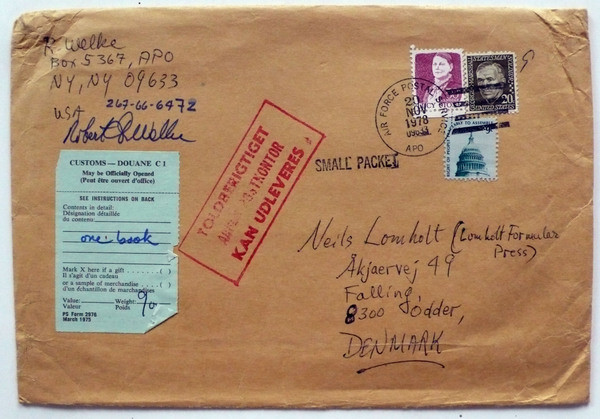 R. Welke
Box 5367, APO
NY, NY 09633
USA
267-66-6972
CUSTOMS — DOUANE C 1
May be Officially Opened
(Peut être ouvert d'office)
SEE INSTRUCTIONS ON BACK
Contents in detail:
Désignation détaillée
du contenu:
one book
Mark X here if a gift ( )
Il s'agit d'un cadeau
or a sample of merchandise ( )
d'un échantillon de marchandises
Value: Weight:
Valeur Poids
PS Form 2976
March 1975
TOLDBERIGTIGET
POSTKONTOR
KAN UDLEVERES
AIR FORCE POSTAL SERVICE
20
NOV
1978
APO
STATESMAN
20
SMALL PACKET
Neils Lomholt (Lomholt Formular
Press)
Åkjaervej 49
Falling,
8300 Odder,
DENMARK